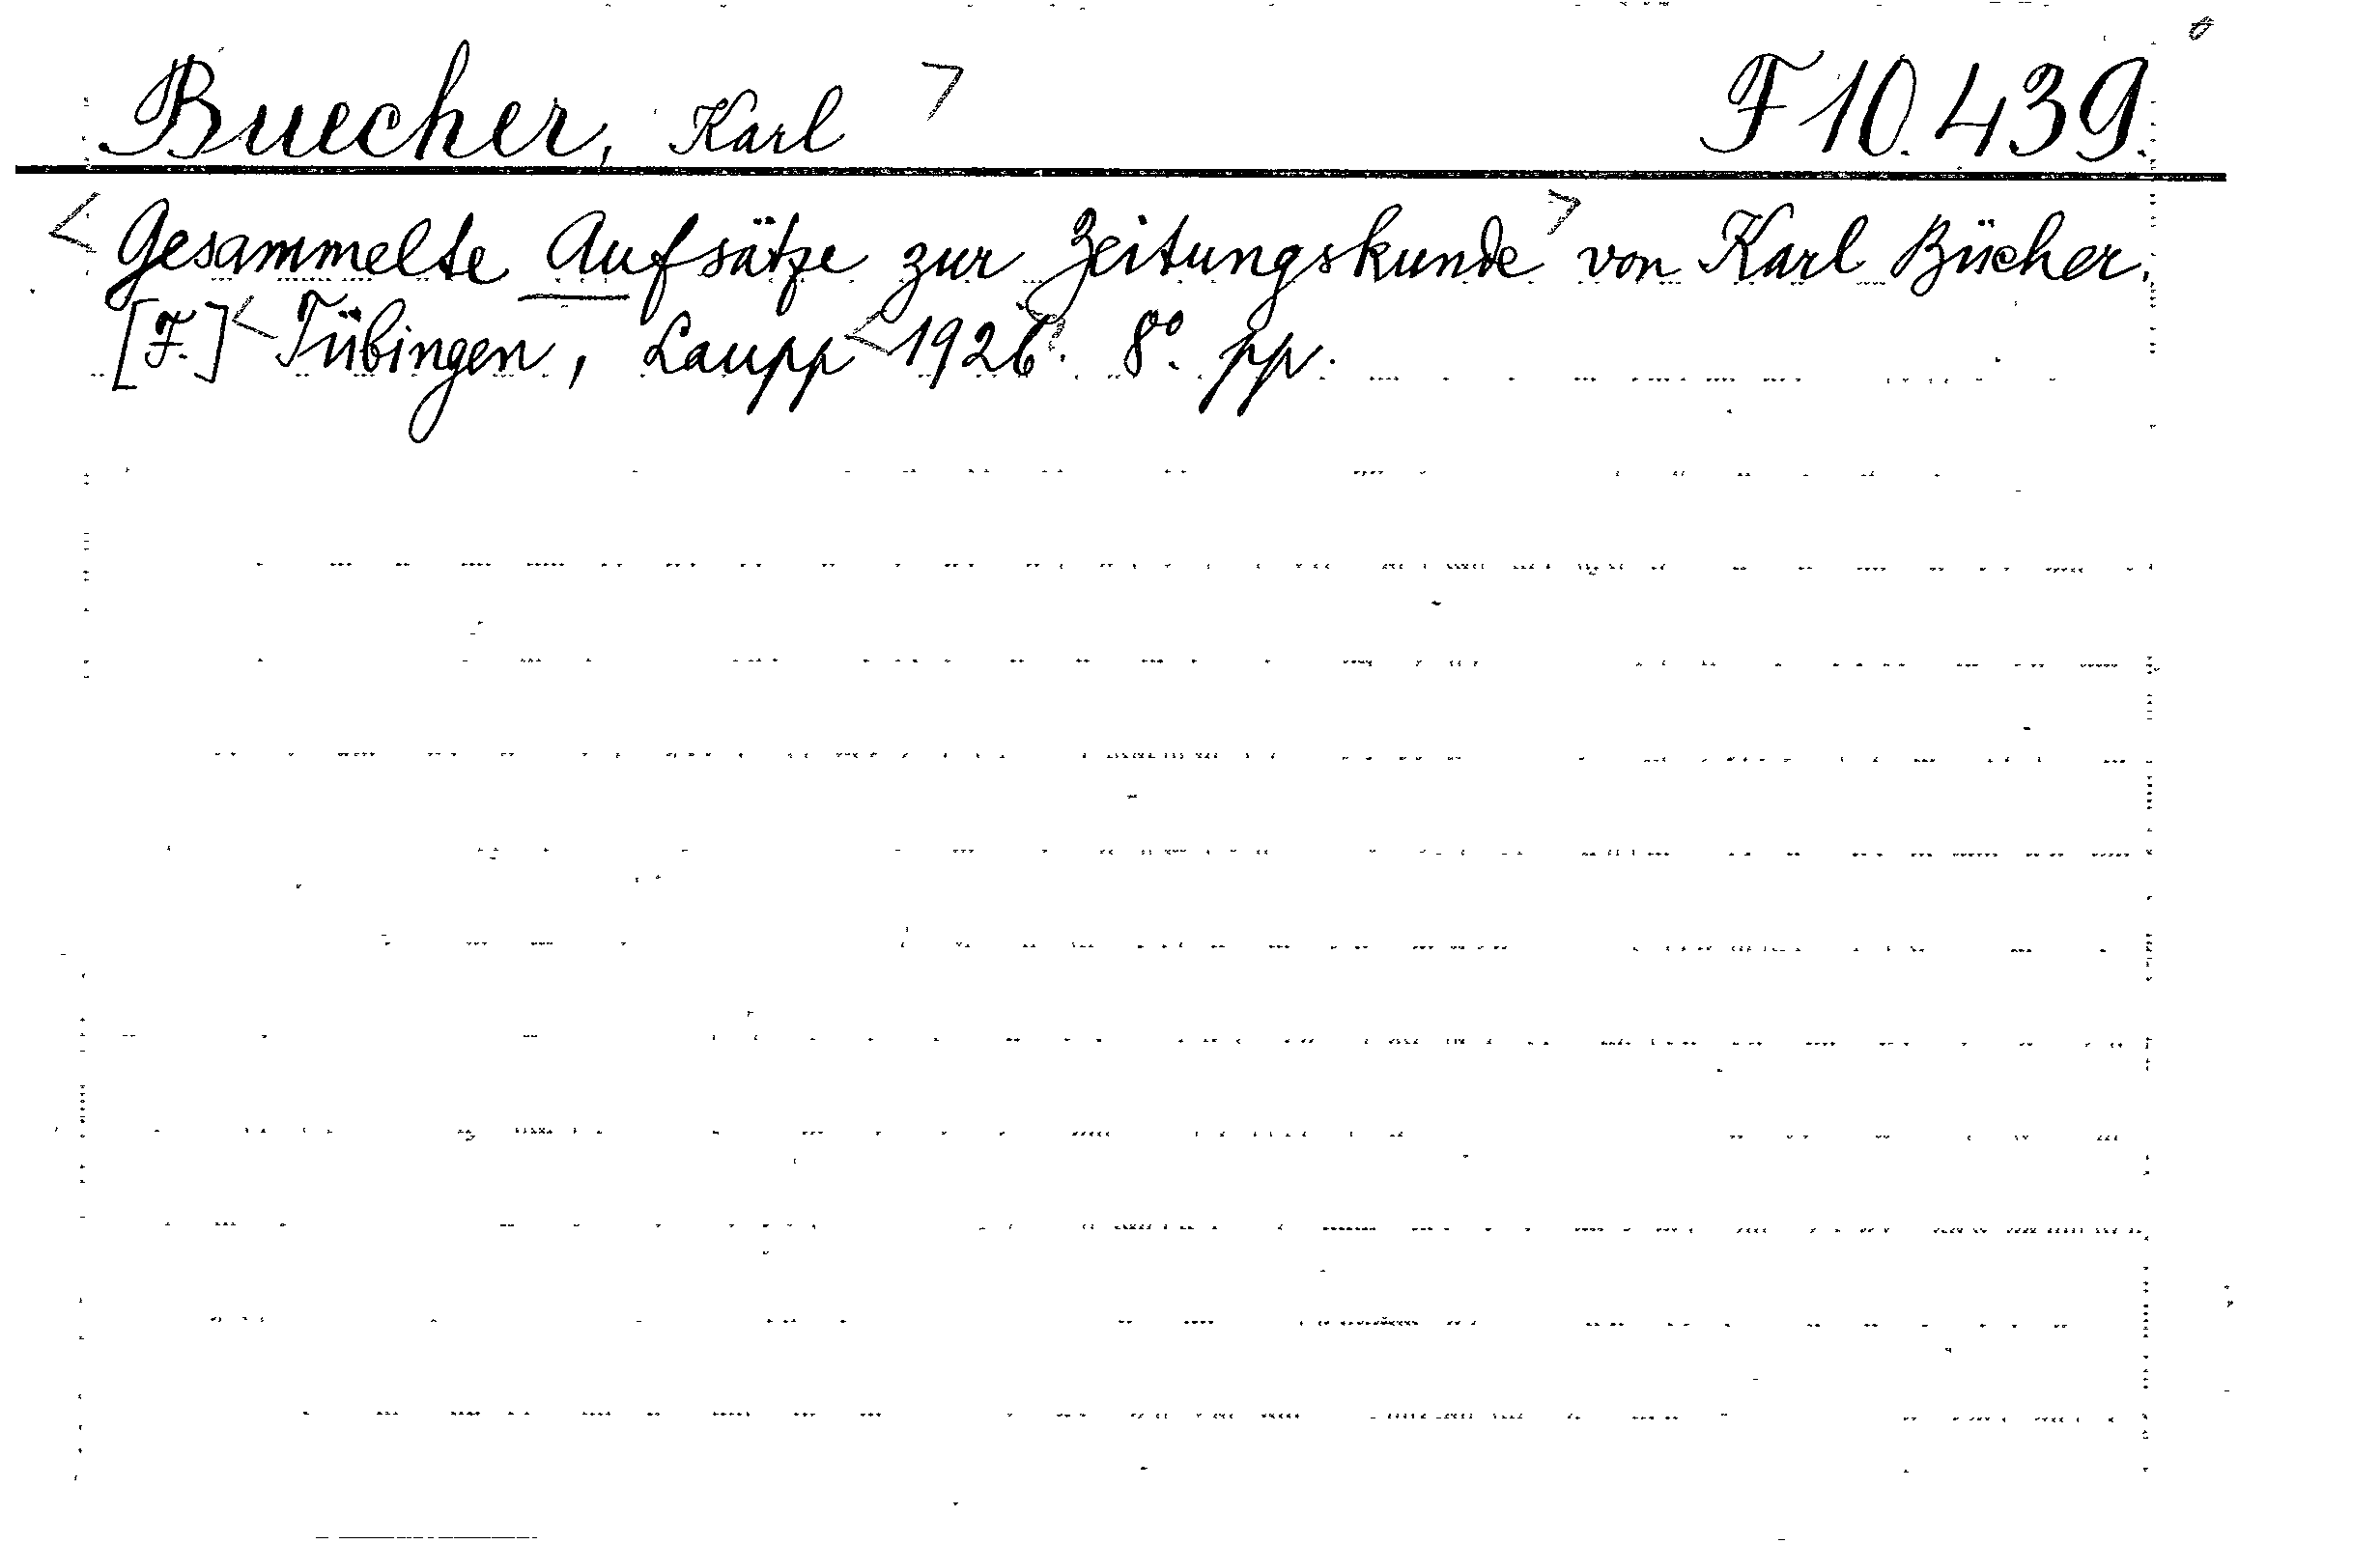 Buecher, Karl > F 10.439.
< Gesammelte Aufsätze zur Zeitungskunde > von Karl Bücher.
[F.] < Tübingen, Laupp < 1926. 8°. pp.